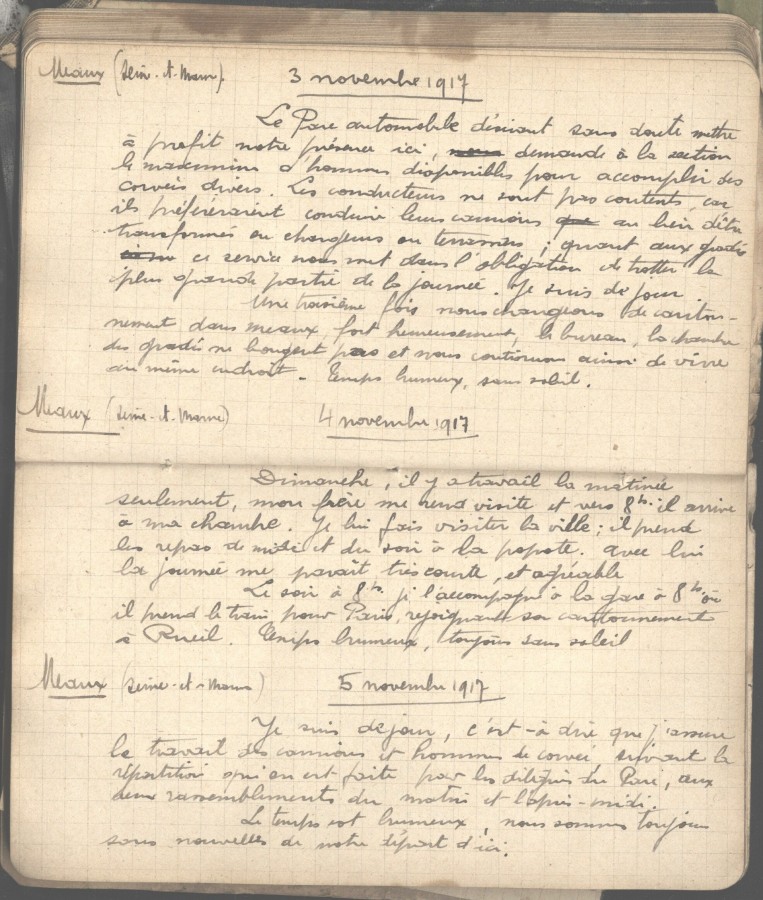 Meaux (Seine-et-Marne). 3 novembre 1917
Le Parc automobile désirant sans doute mettre
à profit notre présence ici, nous demande à la section
le maximum d'hommes disponibles pour accomplir des
corvées divers. Les conducteurs ne sont pas contents, car
ils préféreraient conduire leurs camions que au lieu d'être
transformés en chargeurs ou terrassiers ; quant aux gradés
ce service nous met dans l'obligation de trotter la
plus grande partie de la journée. Je suis de jour.
Une troisième fois nous changeons de canton-
nement dans meaux fort heureusement, le bureau, la chambre
des gradés ne bougent pas et nous continuons ainsi de vivre
au même endroit - Temps brumeux, sans soleil.
Meaux (Seine-et-Marne) 4 novembre 1917
Dimanche, il y a travail la matinée
seulement, mon frère me rend visite et vers 8h. il arrive
à ma chambre. Je lui fais visiter la ville ; il prend
les repas de midi et du soir à la popote. avec lui
la journée me paraît très courte, et agréable
Le soir à 8h. je l'accompagne à la gare à 8h. où
il prend le train pour Paris, rejoignant son cantonnement
à Rueil. Temps brumeux, toujours sans soleil
Meaux (Seine-et-Marne) 5 novembre 1917
Je suis de jour, c'est-à dire que j'assure
le travail des camions et hommes de corvée, suivant la
répartition qui en est faite par les délégués du Parc, aux
deux rassemblements du matin et l'après-midi.
Le temps est brumeux, nous sommes toujours
sans nouvelles de notre départ d'ici.